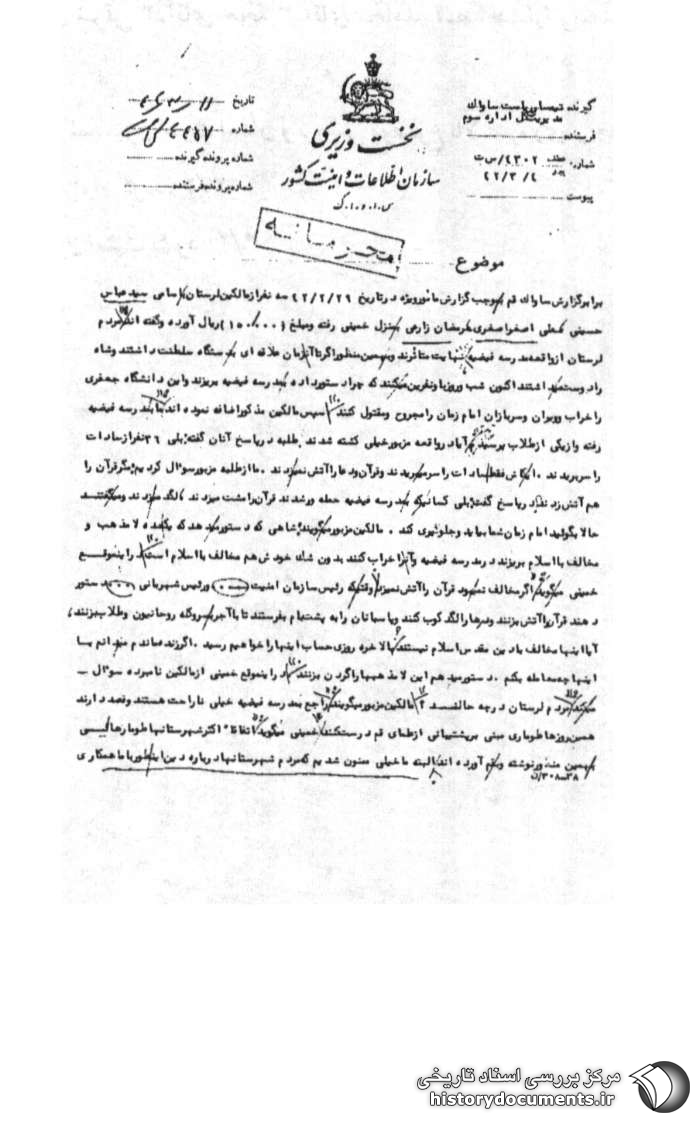 گیرنده تیمسار ریاست ساواک
مدیریت کل اداره سوم
فرستنده
شماره: ۴۳۰۲/س ت
۴۲/۳/۴
پیوست
نخست وزیری
سازمان اطلاعات و امنیت کشور
س.ا.و.ا.ک
تاریخ
شماره
شماره پرونده گیرنده
شماره پرونده فرستنده
محرمانه
موضوع
برابر گزارش ساواک قم بموجب گزارش مامور ویژه در تاریخ ۴۲/۲/۲۹ سه نفر از مالکین لرستان باسامی سید عباس
حسینی علی اصغر اصغری رمضان زارعی بمنزل خمینی رفته و مبلغ (۱۵۰/۰۰۰) ریال آورده و گفته اند مردم
لرستان از واقعه مدرسه فیضیه بینهایت متاثرند و بهمین منظور اگر تا آنزمان علاقه ای بدستگاه سلطنت داشتند و شاه
را دوست میداشتند اکنون شب و روز باو نفرین میکنند که چرا دستور داده بمدرسه فیضیه بریزند و این دانشگاه جعفری
را خراب و ویران و سربازان امام زمان را مجروح و مقتول کنند سپس مالکین مذکور اضافه نموده اند ما بمدرسه فیضیه
رفته و از یکی از طلاب پرسیدیم آیا در واقعه مزبور خیلی کشته شدند طلبه در پاسخ آنان گفت بلی ۳۶ نفر از سادات
را سر بریدند ای کاش فقط سادات را سر میبریدند و قرآن و دعا را آتش نمیزدند. ما از طلبه مزبور سوال کردیم مگر قرآن را
هم آتش زدند در پاسخ گفت بلی کسانیکه بمدرسه فیضیه حمله ور شدند قرآن را مشت میزدند لگد میزدند و میگفتند
حالا بگوئید امام زمان شما بیاید و جلوگیری کند. مالکین مزبور میگویند شاهی که دستور میدهد که یکعده لا مذهب و
مخالف با اسلام بریزند در مدرسه فیضیه و آنرا خراب کنند بدون شک خودش هم مخالف با اسلام است در اینموقع
خمینی میگوید اگر مخالف نمیبود قرآن را آتش نمیزد وقتیکه رئیس سازمان امنیت و رئیس شهربانی دستور
دهند قرآن را آتش بزنند و درها را لگد کوب کنند و پاسبانان را به پشت بام بفرستند تا با آجر بسر و کله روحانیون و طلاب بزنند،
آیا اینها مخالف با دین مقدس اسلام نیستند بالاخره روزی حساب اینها را خواهیم رسید. اگر زنده ماندم میدانم با
اینها چه معامله بکنم. دستور میدهم این لا مذهبها را گردن بزنند در اینموقع خمینی از مالکین نامبرده سوال
میکند مردم لرستان در چه حالند مالکین مزبور میگویند راجع بمدرسه فیضیه خیلی ناراحت هستند و قصد دارند
همین روزها طوماری مبنی بر پشتیبانی از علمای قم درست کنند خمینی میگوید اتفاقا" اکثر شهرستانها طومارهائی
بهمین منظور نوشته و بقم آورده اند البته ما خیلی ممنون شدیم که مردم شهرستانها درباره دین اینطور با ما همکاری
۳۸-۳۰۸/ن
مرکز بررسی اسناد تاریخی
historydocuments.ir